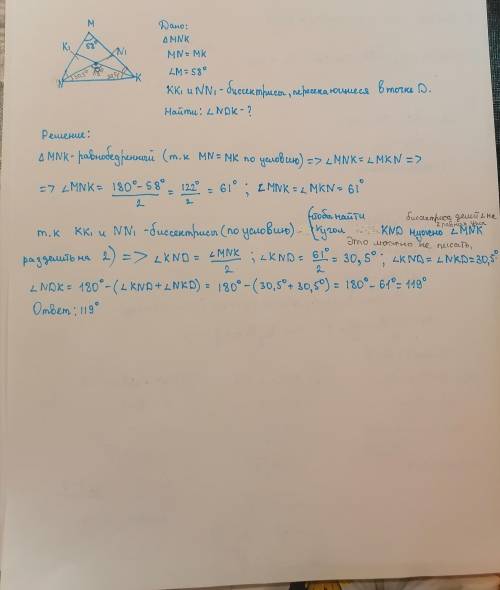 M
58°
K₁
N₁
D
N
K
Дано:
△MNK
MN = MK
∠M = 58°
KK₁ и NN₁ - биссектрисы, пересекающиеся в точке D.
Найти: ∠NDK - ?
Решение:
△MNK - равнобедренный (т.к MN = MK по условию) => ∠MNK = ∠MKN =>
=> ∠MNK = 180° - 58° / 2 = 122° / 2 = 61° ; ∠MNK = ∠MKN = 61°
т.к KK₁ и NN₁ - биссектрисы (по условию)
(чтобы найти
биссектриса делит ∠ на
2 равных угла
угол KND нужно ∠MNK
Это можно не писать,
разделить на 2) => ∠KND = ∠MNK / 2 ; ∠KND = 61° / 2 = 30,5° ; ∠KND = ∠NKD = 30,5°
∠NDK = 180° - (∠KND + ∠NKD) = 180° - (30,5° + 30,5°) = 180° - 61° = 119°
Ответ: 119°